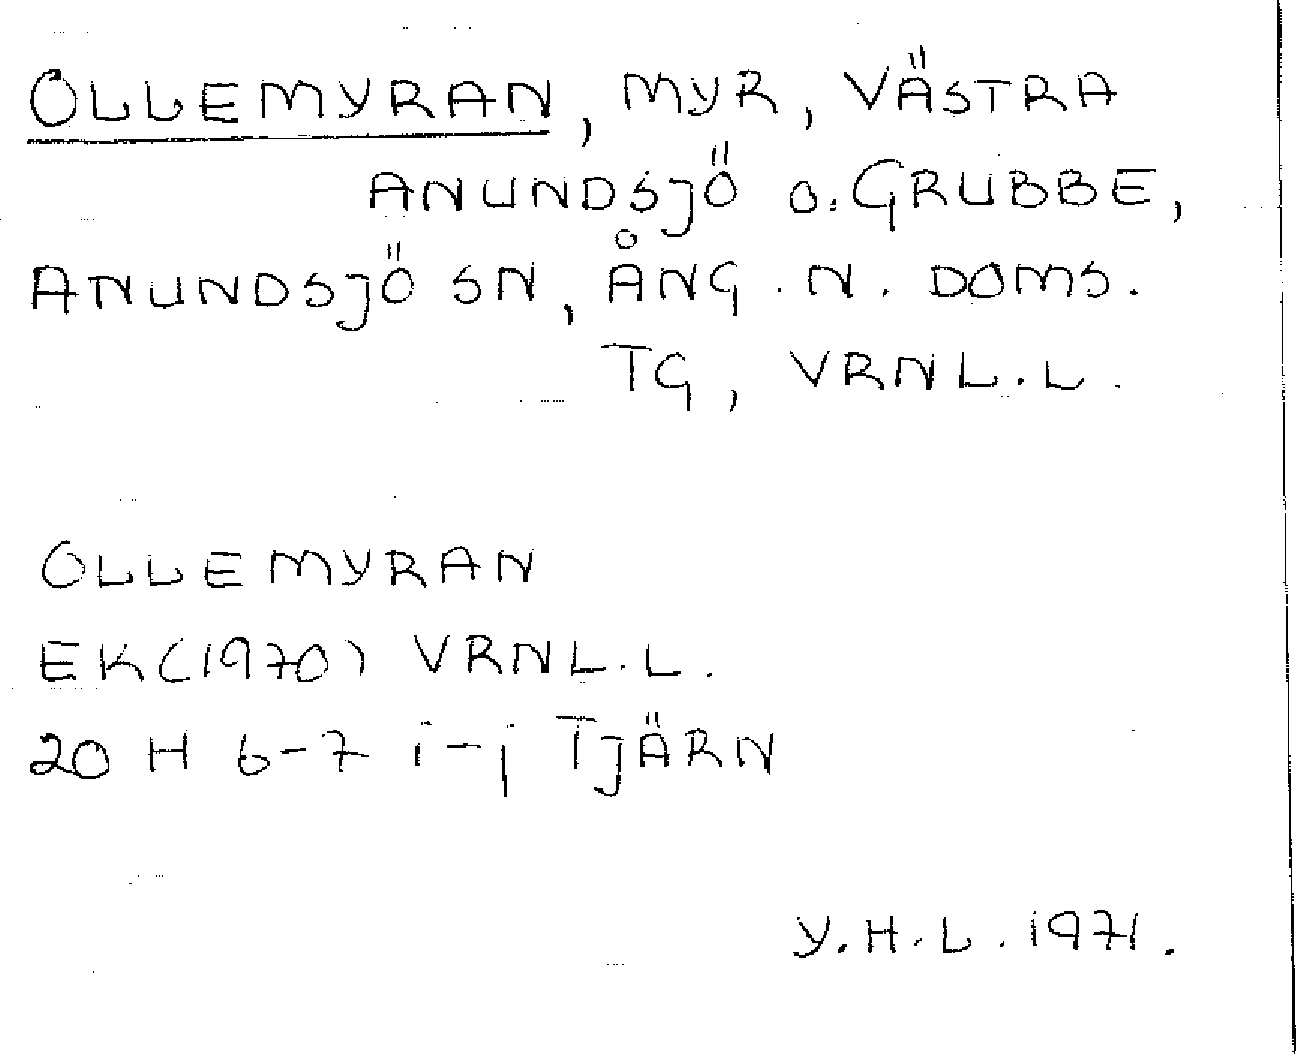 OLLEMYRAN, MYR, VÄSTRA
ANUNDSJÖ O. GRUBBE,
ANUNDSJÖ SN, ÅNG. N. DOMS.
TG, VRNL.L.
OLLEMYRAN
EK(1970) VRNL.L.
20 H 6-7 i-j TJÄRN
Y.H.L. 1971.